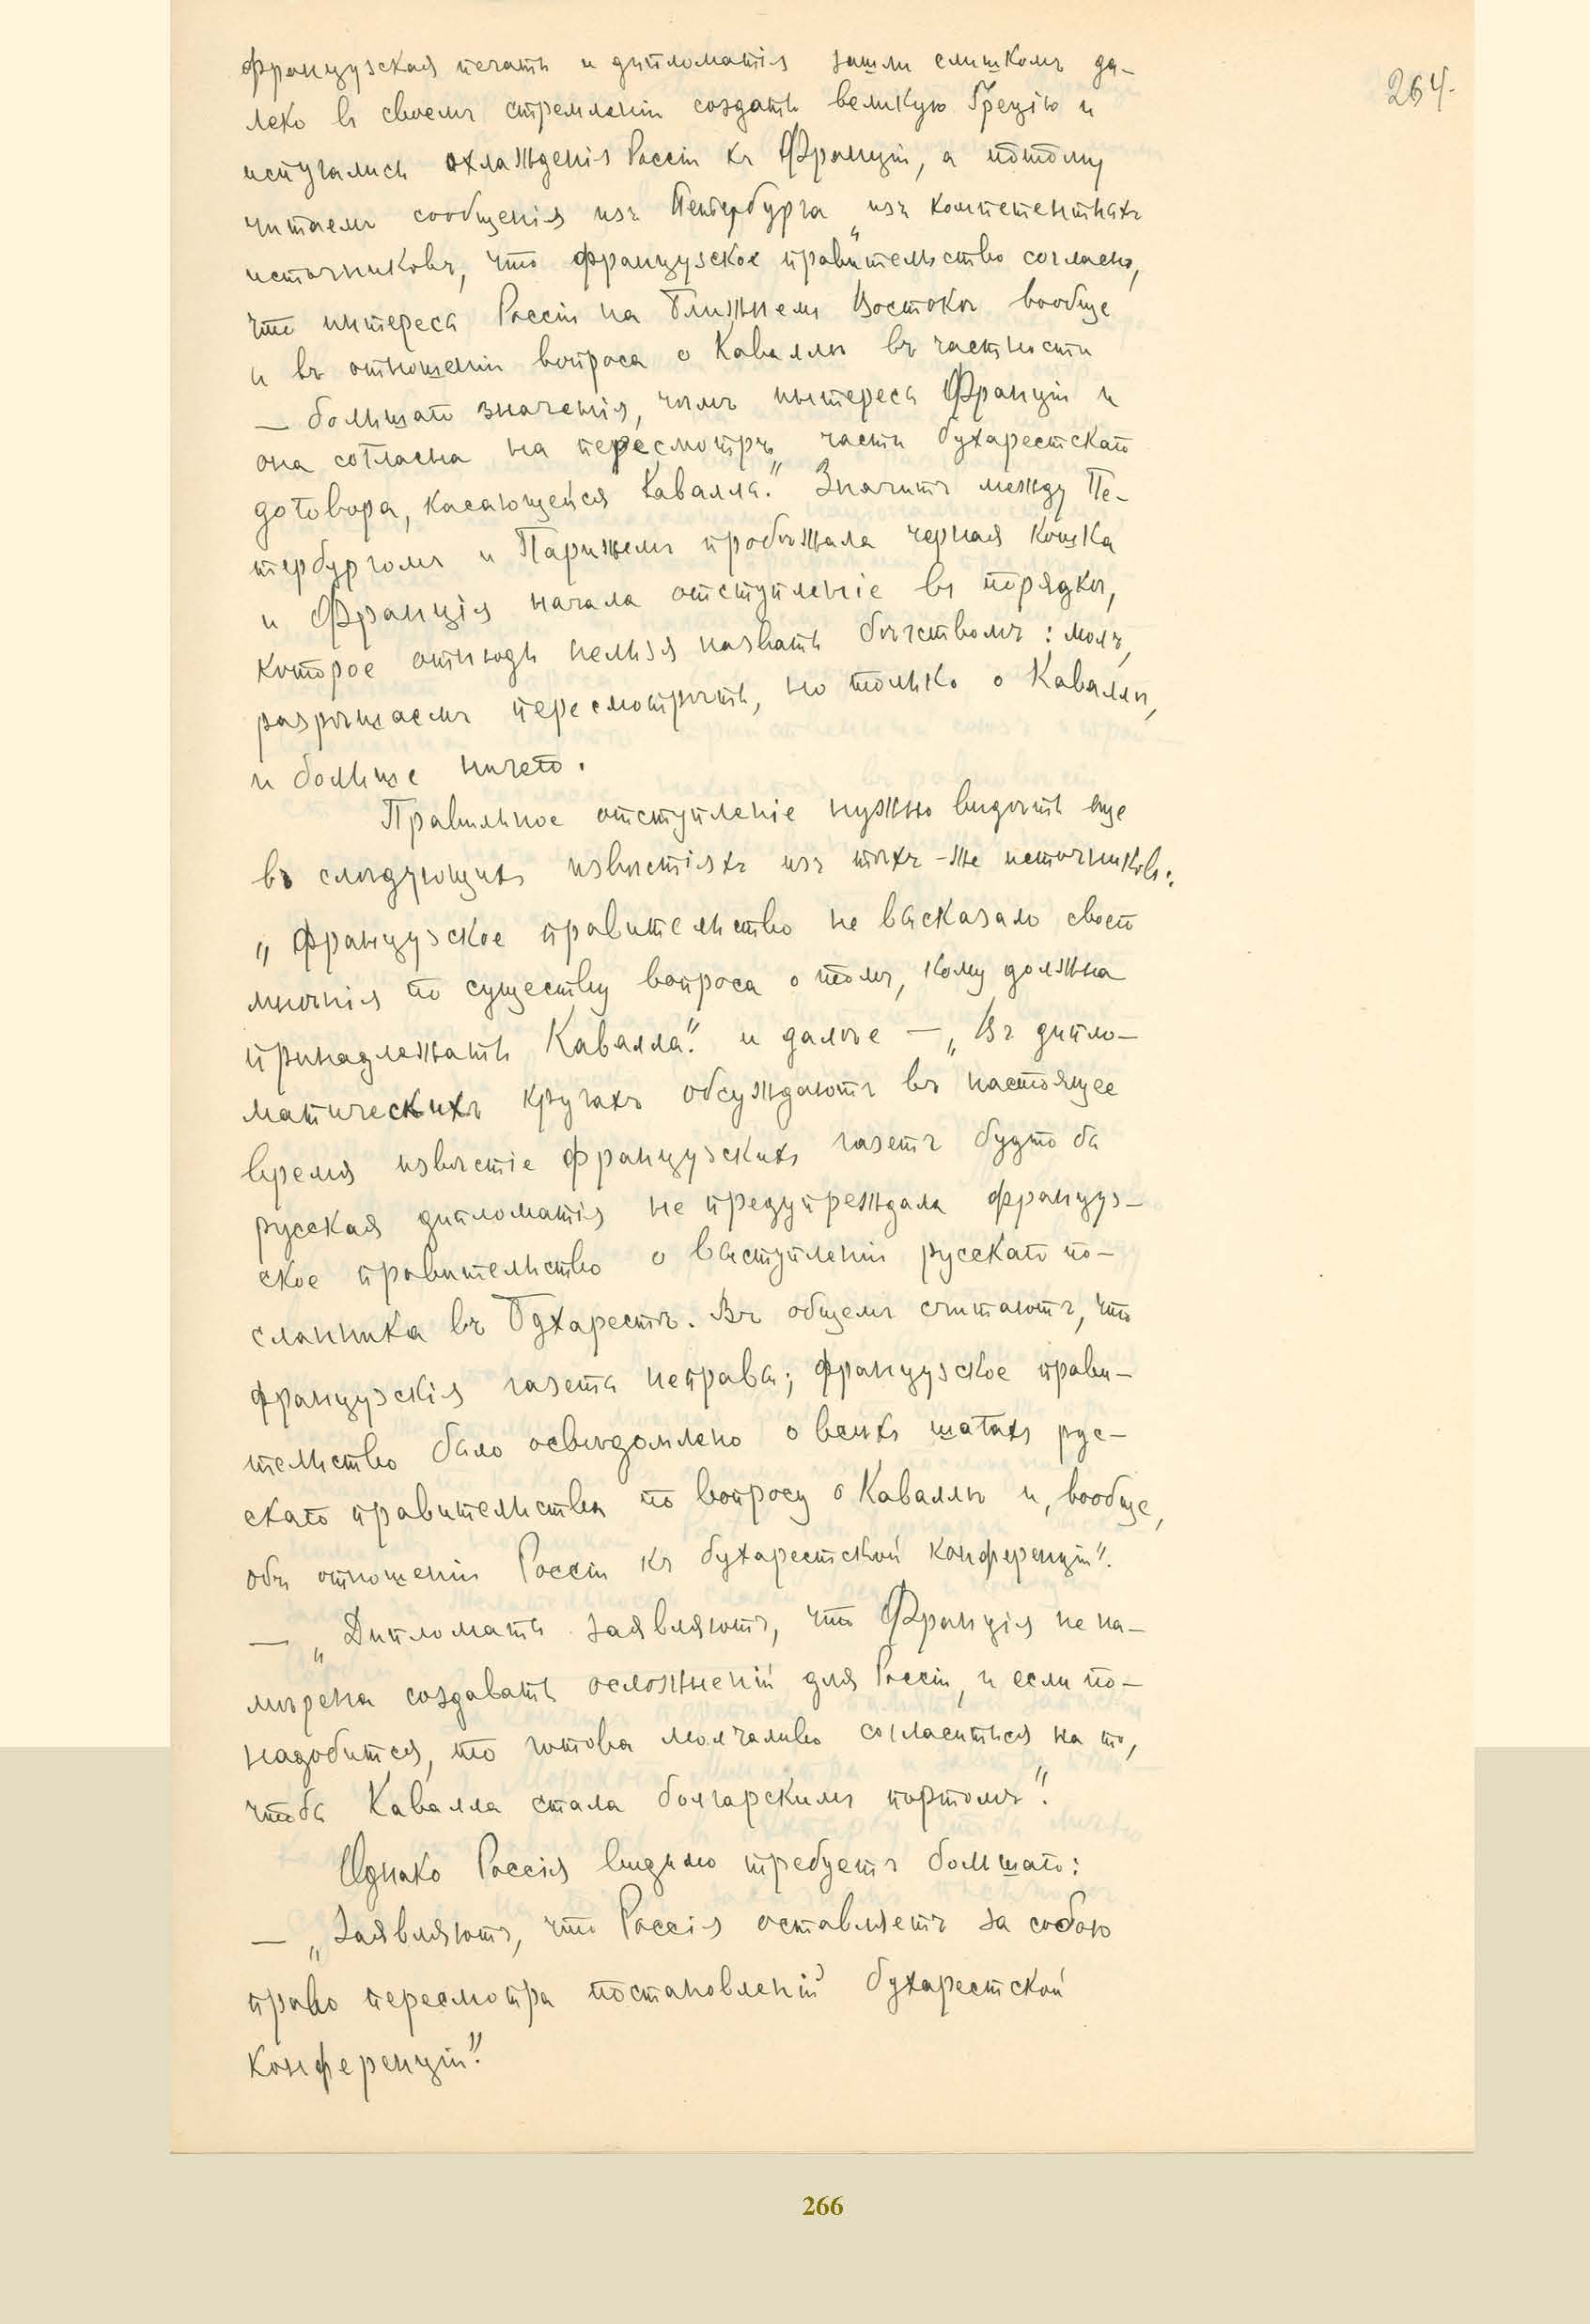 264.
французская печать и дипломатія зашли слишкомъ да-
леко въ своемъ стремленіи создать великую Грецію и
испугались охлажденія Россіи къ Франціи, а потому
читаемъ сообщенія изъ Петербурга „изъ компетентныхъ
источниковъ, что французское правительство согласно,
что интересы Россіи на Ближнемъ Востокѣ вообще
и въ отношеніи вопроса о Каваллѣ въ частности
— большаго значенія, чѣмъ интересы Франціи и
она согласна на пересмотръ части бухарестскаго
договора, касающейся Кавалла." Значитъ между Пе-
тербургомъ и Парижемъ пробѣжала черная кошка
и Франція начала отступленіе въ порядкѣ,
которое отнюдь нельзя назвать бѣгствомъ: молъ,
разрѣшаемъ пересмотрѣть, но только о Каваллѣ,
и больше ничего.
Правильное отступленіе нужно видѣть еще
въ слѣдующихъ извѣстіяхъ изъ тѣхъ-же источниковъ:
„французское правительство не высказало своего
мнѣнія по существу вопроса о томъ, кому должна
принадлежать Кавалла." и далѣе — „Въ дипло-
матическихъ кругахъ обсуждаютъ въ настоящее
время извѣстіе французскихъ газетъ будто бы
русская дипломатія не предупреждала француз-
ское правительство о выступленіи русскаго по-
сланника въ Бухарестѣ. Въ общемъ считаютъ, что
французскія газеты неправы; французское прави-
тельство было освѣдомлено о всѣхъ шагахъ рус-
скаго правительства по вопросу о Каваллѣ и, вообще,
объ отношеніи Россіи къ бухарестской конференціи".
— „Дипломаты заявляютъ, что Франція не на-
мѣрена создавать осложненій для Россіи, и если по-
надобится, то готова молчаливо согласиться на то,
чтобы Кавалла стала болгарскимъ портомъ".
Однако Россія видимо требуетъ большаго:
— „Заявляютъ, что Россія оставляетъ за собою
право пересмотра постановленій бухарестской
конференціи".
266